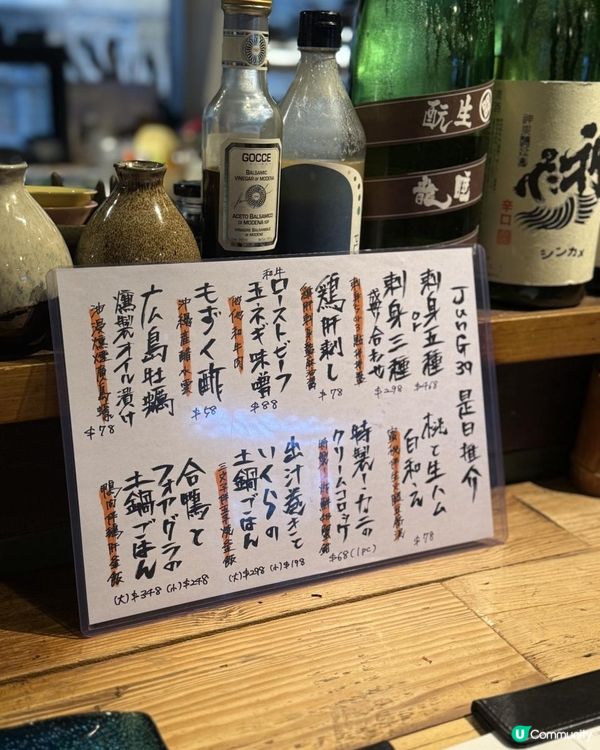 JunG39 是日推介
刺身五種 $468
or
刺身三種 $298
盛り合わせ
鶏肝刺し
$78
和牛
ローストビーフ
玉ネギ味噌
$88
もずく酢
沖縄産醋水雲
$58
広島牡蠣
燻製オイル漬け
$78
桃と生ハム
白和え
$78
特製！カニの
クリームコロッケ
$68(1pc)
出汁巻きと
いくらの
土鍋ごはん
(大)$298 (小)$198
合鴨と
フォアグラの
土鍋ごはん
鴨肉伴鴨肝釜飯
(大)$348 (小)$248
GOCCE
BALSAMIC
VINEGAR OF MODENA
ACETO BALSAMICO
DI MODENA IGP
生酛
龍
辛口
シンカメ
U Community